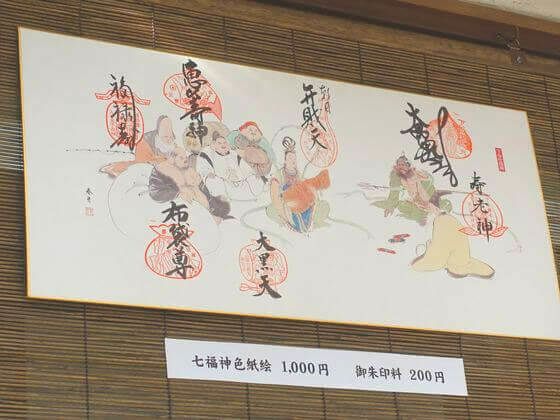 福禄寿
恵比寿神
弁財天
寿老神
布袋尊
大黒天
七福神色紙絵 1,000円 御朱印料 200円